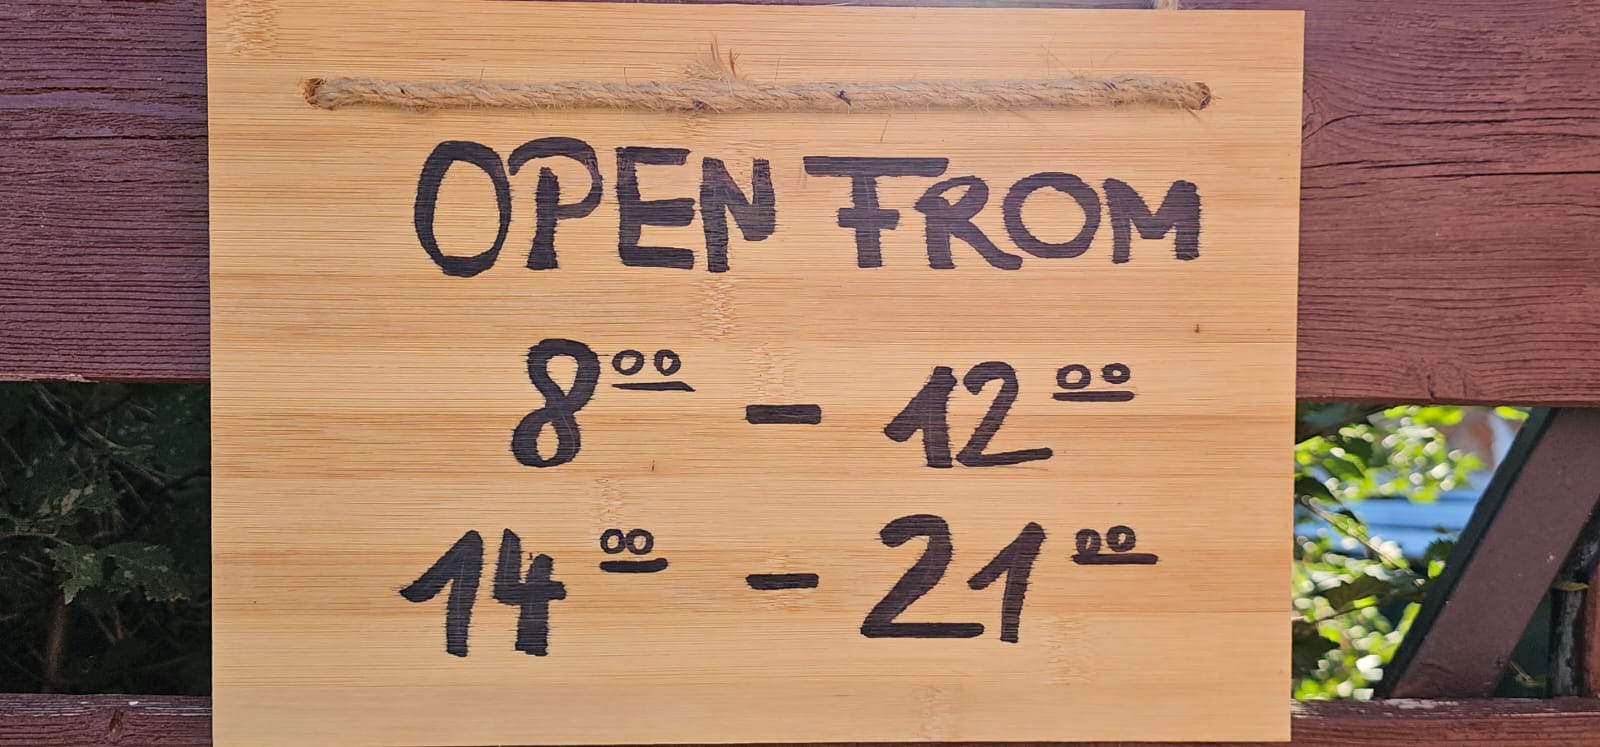 OPEN FROM
8⁰⁰ - 12⁰⁰
14⁰⁰ - 21⁰⁰